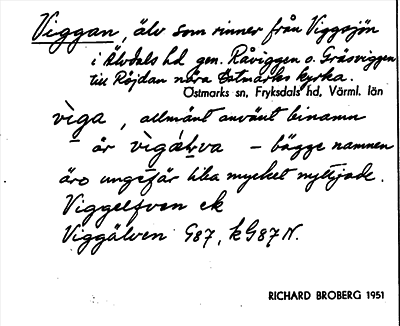 Viggan, älv som rinner från Viggsjön
i Älvdals hd gen. Råviggen o. Gräsviggen
till Röjdan nära Östmarks kyrka.
Östmarks sn, Fryksdals hd, Värml. län
vìga, allmänt använt binamn
är vìgäḷva – bägge namnen
äro ungefär lika mycket nyttjade.
Viggelfven ek
Viggälven G87, kG87N.
RICHARD BROBERG 1951